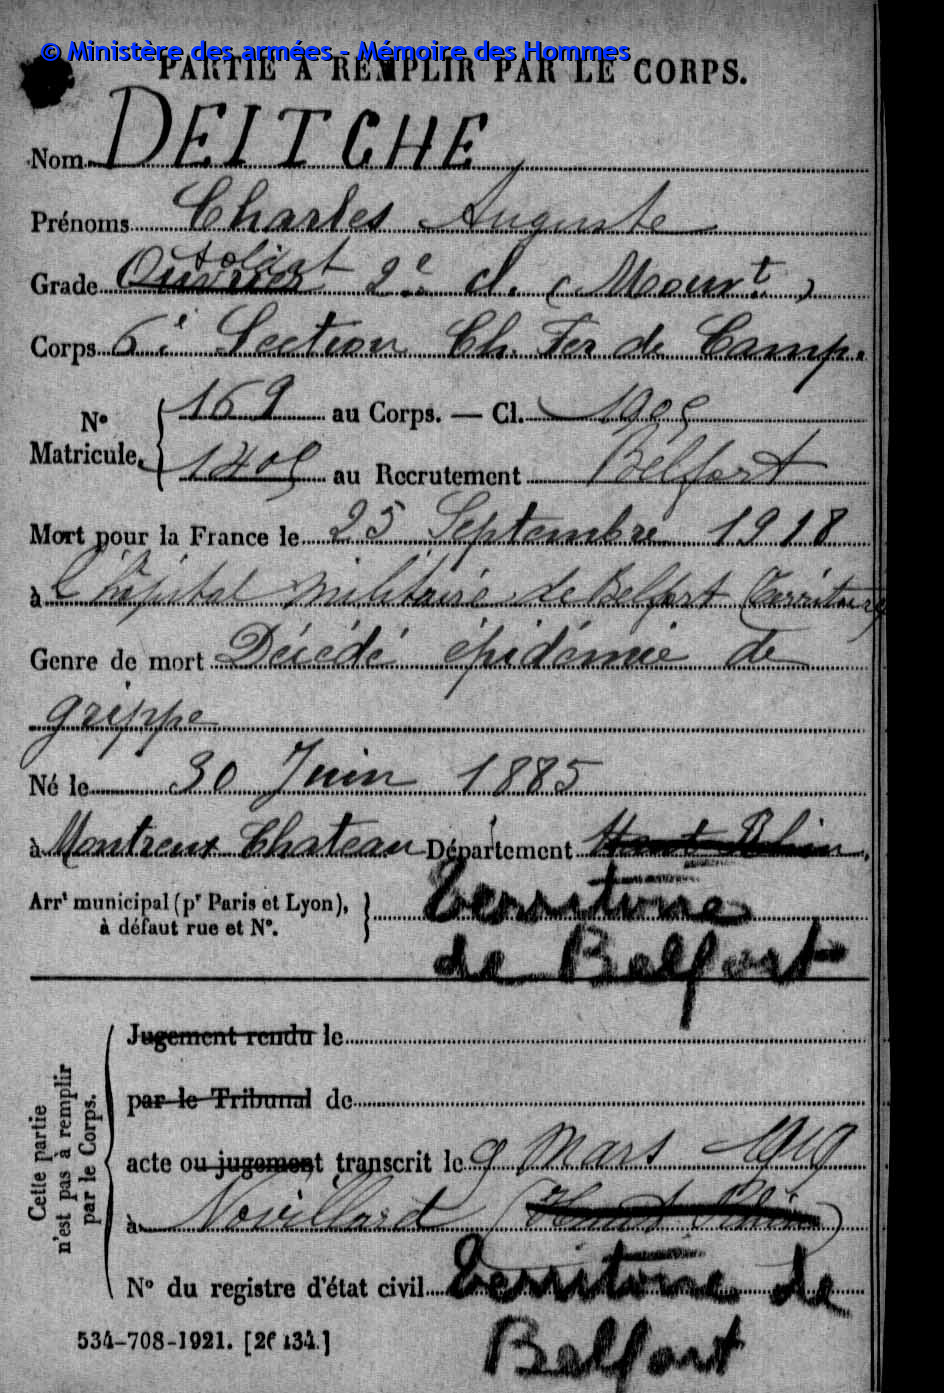 © Ministère des armées - Mémoire des Hommes
PARTIE A REMPLIR PAR LE CORPS.
Nom DEITCHE
Prénoms Charles Auguste
soldat
Grade Ouvrier 2e cl. (Mourt)
Corps 6e Section Ch. Fer de Camp.
N° Matricule. 169 au Corps. — Cl. 1905
1405 au Recrutement Belfort
Mort pour la France le 25 Septembre 1918
à l'hôpital militaire de Belfort (Territoire)
Genre de mort Décédé épidémie de
grippe
Né le 30 Juin 1885
à Montreux Chateau Département Haut Rhin.
Arrt municipal (pr Paris et Lyon), à défaut rue et N°. Territoire
de Belfort
Cette partie n'est pas à remplir par le Corps.
Jugement rendu le
par le Tribunal de
acte ou jugement transcrit le 9 Mars 1919
à Novillard (Haut Rhin)
N° du registre d'état civil Territoire de
Belfort
534-708-1921. [26134.]